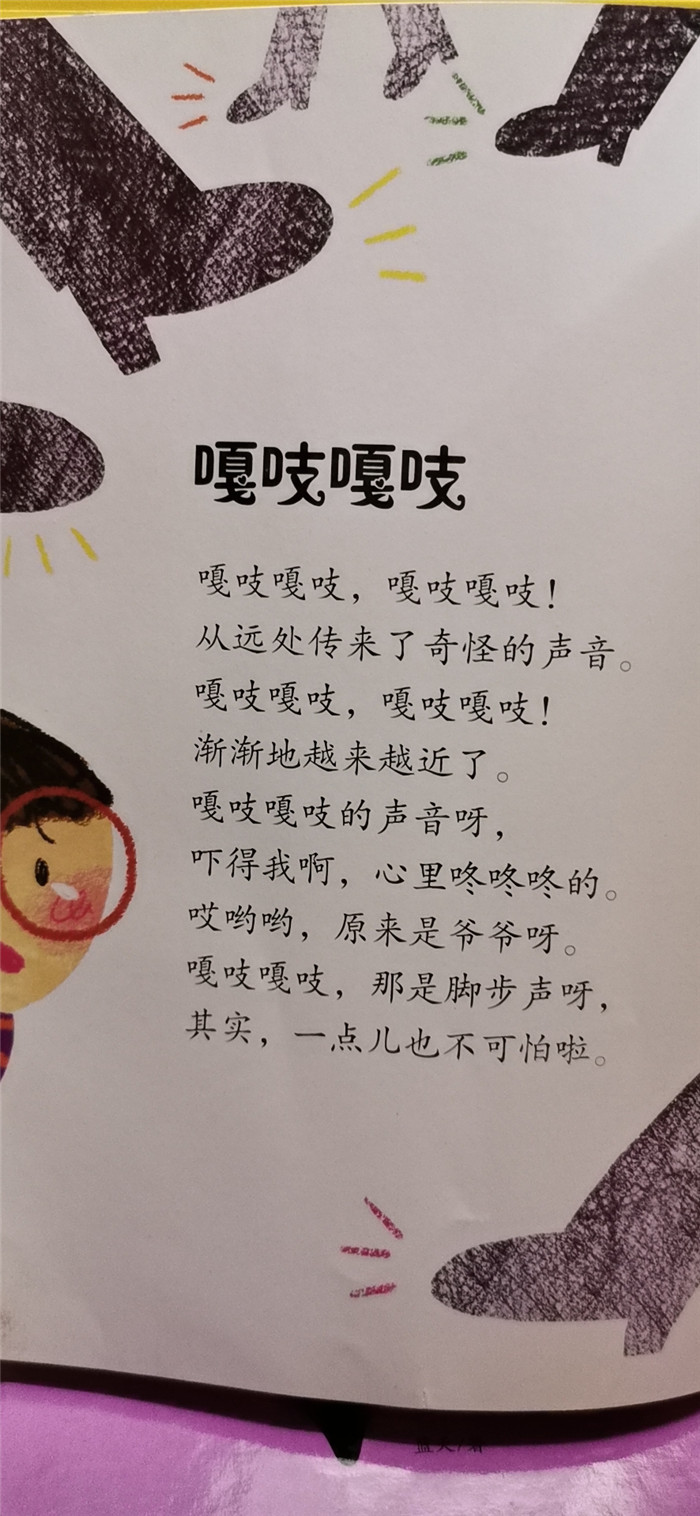 嘎吱嘎吱
嘎吱嘎吱，嘎吱嘎吱！
从远处传来了奇怪的声音。
嘎吱嘎吱，嘎吱嘎吱！
渐渐地越来越近了。
嘎吱嘎吱的声音呀，
吓得我啊，心里咚咚咚的。
哎哟哟，原来是爷爷呀。
嘎吱嘎吱，那是脚步声呀，
其实，一点儿也不可怕啦。